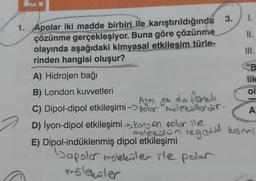 1. Apolar iki madde birbiri ile karıştırıldığında
çözünme gerçekleşiyor. Buna göre çözünme
olayında aşağıdaki kimyasal etkileşim türle-
rinden hangisi oluşur?
A) Hidrojen bağı
B) London kuvvetleri
Aynı ya da farklı
C) Dipol-dipol etkileşimi → polar moleküllerdir.
D) İyon-dipol etkileşimi → katyon polar ile
molekülün negatif kısmı
E) Dipol-indüklenmiş dipol etkileşimi
→ apolar moleküller ile polar
moleküller
3. I.
II.
III.
B
lik
ol
A